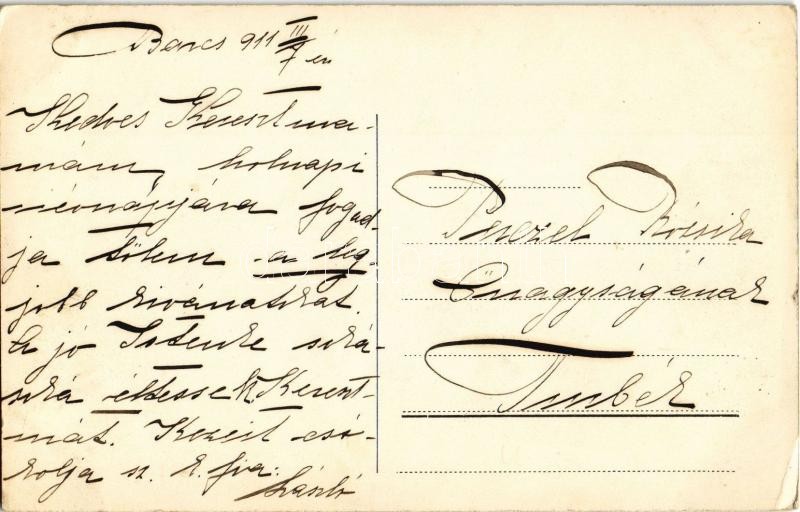 Barcs 911 III/7 én
Kedves Keresztma-
mám, holnapi
névnapjára fogad-
ja tőlem a leg-
jobb kivánatikat.
A jó Istenke soká-
soká éltesse K. Kereszt-
mát. Kezeit csó-
kolja sz. k. fia:
László
Perczel Rózsika
Önagyságának